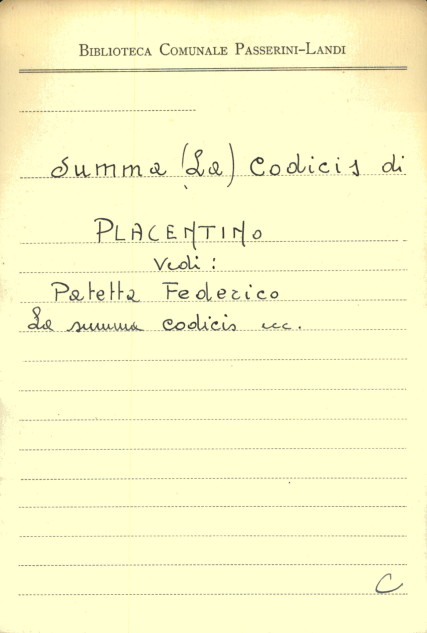 BIBLIOTECA COMUNALE PASSERINI-LANDI
Summa (La) Codicis di
PLACENTINO
Vedi:
Patetta Federico
La summa codicis ecc.
C